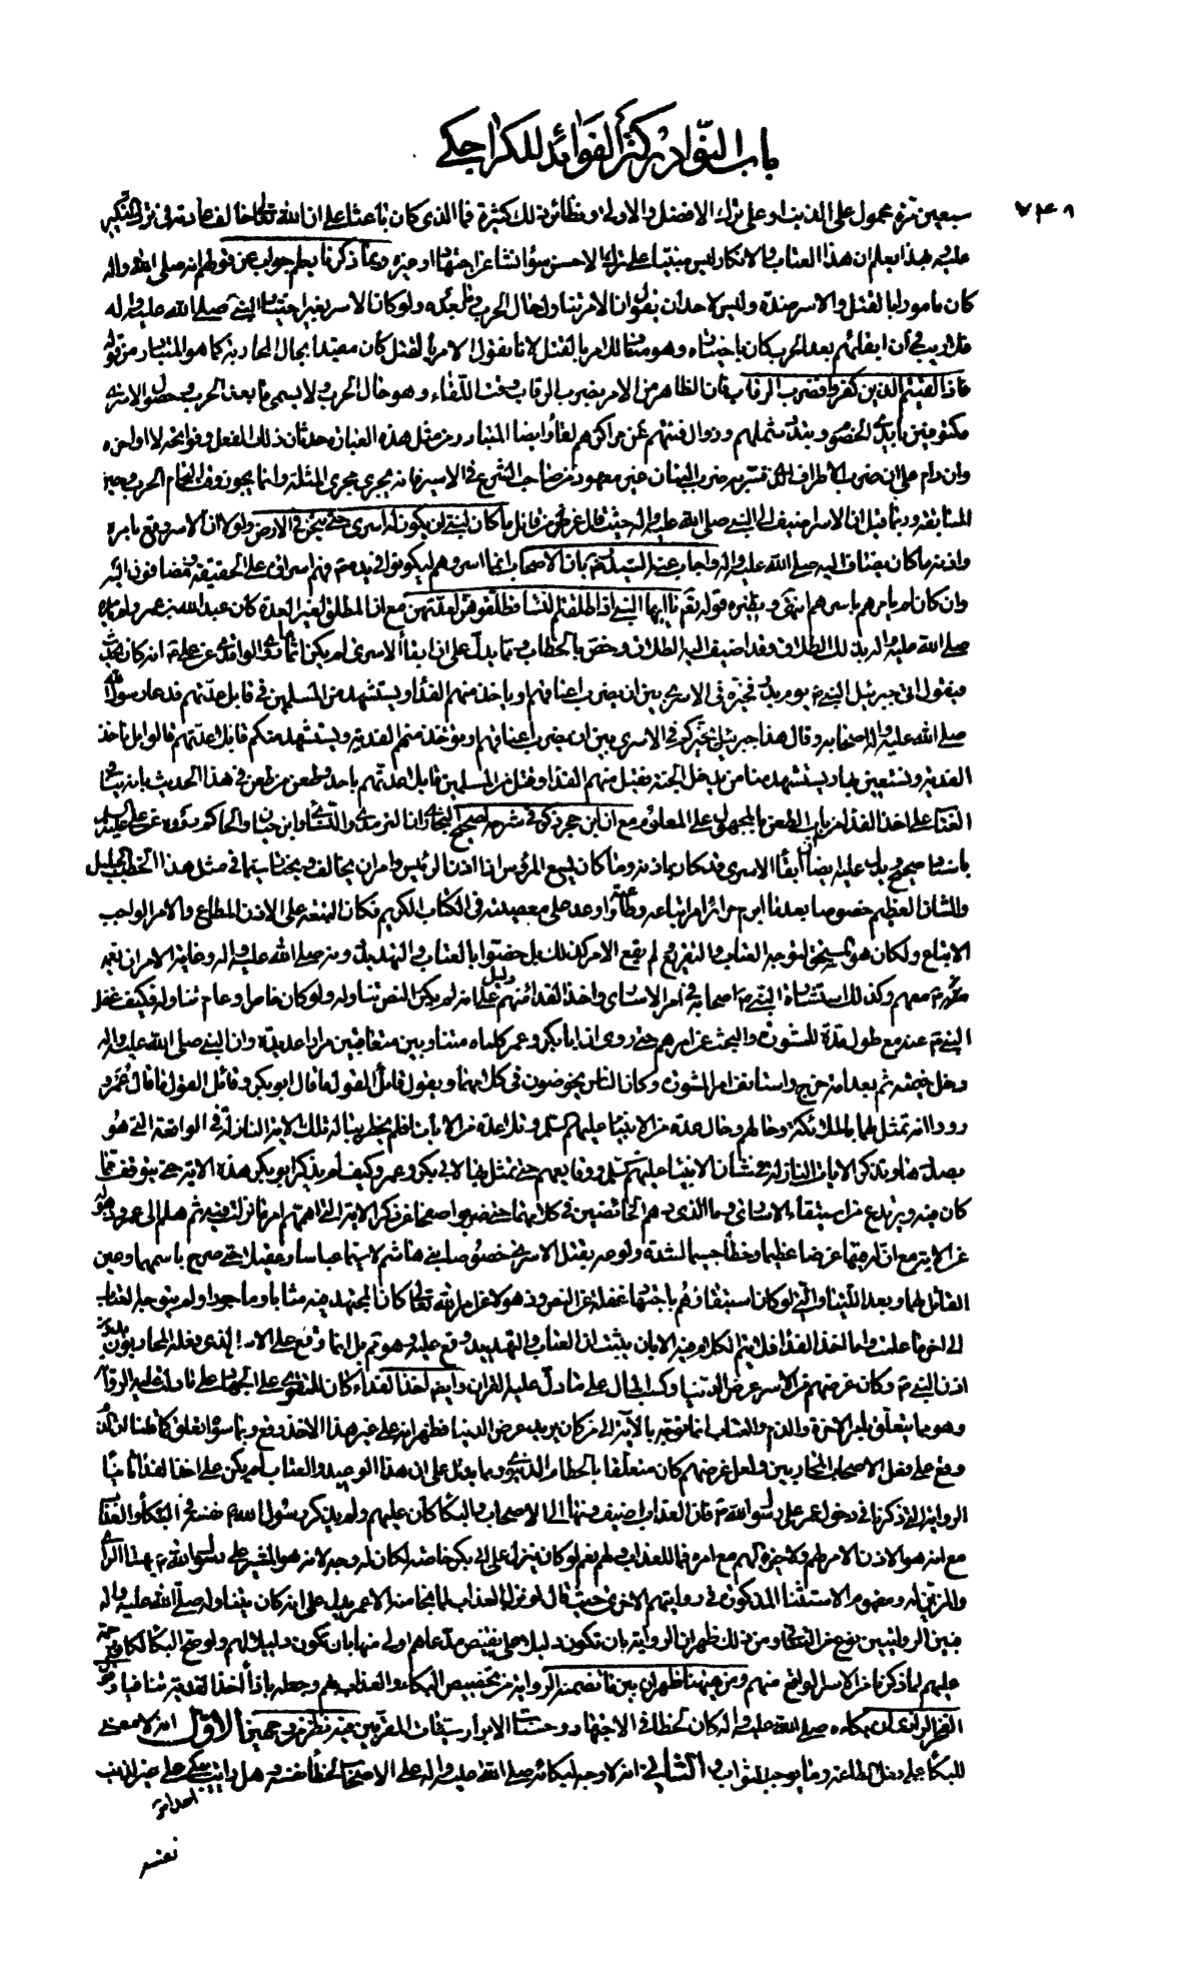 باب النوادر كنز الفوائد للكراجكي
٧٣٨
سبعين مرة محمول على الذنب او على ترك الافضل والاولى ونظائر ذلك كثيرة فما الذي كان باعثا على ان الله تعالى خالف عادته في ترك النكير
عليه بهذا يعلم ان هذا العتاب والانكار ليس مبتنيا على ترك الاحسن سواء نشأ عن اجتهاد او غيره وبما ذكرنا يعلم جواب عن قولهم انه صلى الله عليه واله
كان مامورا بالقتل والاسر ضده وليس لاحد ان يقول ان الامر يتناول حال الحرب وما بعده ولو كان الاسر بغير اختيار النبي صلى الله عليه واله
فلا ريب في أن ابقائهم بعد الحرب كان باختياره وهو مناف للامر بالقتل لانا نقول الامر بالقتل كان مقيدا بحال المحاربة كما هو المتبادر من قوله
فاذا لقيتم الذين كفروا فضرب الرقاب فان الظاهر من الامر بضرب الرقاب تحت اللقاء وهو حال الحرب ولا يسمى ما بعد الحرب وحصول الاسرى
مكتوفين بايدي الخصوم وتبدد شملهم وزوال فئتهم عن مراكزهم لقاء وايضا المتبادر من مثل هذه العبارة حدثان ذلك الفعل وفواتحه لا اواخره
وان دام على ان ضرب الاطراف الذي فسر به ضرب البنان غير معهود من صاحب الشرع في الاسير فانه يجري مجرى المثلة وانما يجوز وقت التحام الحرب وحين
المسابقة وربما قيل ان الاسر اضيف الى النبي صلى الله عليه واله حيث قال عز من قائل ما كان لنبي ان يكون له اسرى حتى يثخن في الارض ولولا ان الاسر وقع بامره
واذنه ما كان يضاف اليه صلى الله عليه واله واجاب عنه السيد بان الاصحاب انما اسروهم ليكونوا في يده فهم اسراؤه على الحقيقة ومضافون اليه
وان كان لم يامرهم باسرهم انتهى ونظيره قوله تعالى يا ايها النبي اذا طلقتم النساء فطلقوهن لعدتهن مع ان المطلق لغير العدة كان عبد الله بن عمر ولم يامره
صلى الله عليه واله بذلك الطلاق وقد اضيف اليه الطلاق وخص بالخطاب ومما يدل على ان ابقاء الاسرى لم يكن الواقدي عن علي انه كان يحدث
فيقول اتى جبرئيل النبي يوم بدر فخيره في الاسرى بين ان يضرب اعناقهم او ياخذ منهم الفداء ويستشهد من المسلمين في قابل عدتهم فدعا رسول الله
صلى الله عليه واله اصحابه وقال هذا جبرئيل يخيركم في الاسرى بين ان يضرب اعناقهم او يؤخذ منهم الفدية ويستشهد منكم قابلا عدتهم قالوا بل ناخذ
الفدية ونستعين بها ويستشهد منا من يدخل الجنة فقبل منهم الفداء وقتل من المسلمين قابلا عدتهم باحد وطعن من طعن في هذا الحديث بانه ينافي
العتاب على اخذ الفداء من باب الطعن بالمجهول على المعلوم مع ان ابن حجر ذكر في شرحه لصحيح البخاري ان الترمذي والنسائي وابن حبان والحاكم رووه عن علي
باسناد صحيح ويدل عليه ايضا ان ابقاء الاسرى قد كان باذنه وما كان ليسع المرؤس اذا اذن الرئيس وامر ان يخالف ويجتنب سيما في مثل هذا الخطب الجليل
والشان العظيم خصوصا بعد ما اوعد على معصيته في الكتاب الكريم فكان التبعة على الاذن المطاع والامر الواجب
الاتباع ولكان هو المستحق لتوجه العتاب والتقريع لم يقع الامر كذلك بل خصوا بالعتاب والتهديد دونه صلى الله عليه واله وغاية الامر ان يعمه
معهم وكذلك استشارة النبي اصحابه في امر الاسارى واخذ الفداء منهم دليل على انه لم يكن النص تناوله ولو كان خاصا او عاما تناوله فكيف غفل
النبي عنه مع طول مدة المشورة والبحث عن امرهم حتى روى ان ابا بكر وعمر كلماه متناوبين متعاقبين مرارا عديدة وان النبي صلى الله عليه واله
دخل خيمته ثم بعد امر خرج واستانف امر المشورة وكان الناس يخوضون في كلامهما ويقول قائل القول ما قال ابو بكر وقائل القول ما قال عمر
ورووا انه تمثل لهما بالملائكة وحالهم وحال عدة من الانبياء عليهم السلم وتلا عدة من الايات فلم يخطر بباله تلك الاية النازلة في الواقعة التي هو
بصددها وتذكر الايات النازلة في شان الانبياء عليهم السلم ووقايعهم حتى تمثل بها لابي بكر وعمر وكيف لم يذكر ابو بكر هذه الاية حتى يتوقف عما
كان فيه ويرتدع من استبقاء الاسارى وما الذي دهم الخائضين في كلامهما حتى ضربوا صفحا عن ذكر الاية التي اهمتهم امر ما نزلت فيه ثم هلم الى عمر
عن الاية مع ان له فيها غرضا عظيما وحظا جسيما لشدة ولوعه بقتل الاسرى خصوصا بني هاشم لا سيما عباسا وعقيلا حتى صرح باسمهما وعين
القاتل لهما وبعد اللتيا والتي لو كان استبقاؤهم باجتهادهم غفلة عن النص وذهولا عن امر الله تعالى كان المجتهد فيه مثابا وماجورا ولم يتوجه العتاب
الى اخر ما علمت واما اخذ الفداء فلا يتم الكلام فيه الا بان يثبت ان العتاب والتهديد وقع عليه وهو وهم بل انما وقع على الاسر الذي فعله المحاربون بدون
اذن النبي وكان غرضهم من الاسر عرض الدنيا وكسب المال على ما دل عليه القران وايضا اخذ الفداء كان للتقوي على الجهاد على ما دلت عليه الرواية
وهو مما يتعلق بامر الاخرة والذم والعتاب انما توجه بالاية الى من كان يريد عرض الدنيا فظهر انه على غير هذا الاخذ وقع
وقع على فعل الاصحاب المحاربين ولعل غرضهم كان متعلقا بالحطام الدنيوي ومما يدل على ان هذا الوعيد والعتاب لم يكن على اخذ الفداء ثانيا
الرواية التي ذكرنا في دخول عمر على رسول الله فان العذاب اضيف فيها الى الاصحاب والبكاء كان عليهم ولم يذكر رسول الله نفسه في البكاء والعذاب
مع انه هو الاذن الامر لهم ولا خيرة لهم مع امره فما للعذاب ولهم نعم لو كان ينزل على ابي بكر خاصة لكان له وجه لانه هو المشير على رسول الله بهذا الراي
والمزين له ومفهوم الاستثناء المذكور في روايتهم الاخرى حيث قال لو نزل العذاب لما نجا منه الا عمر يدل على انه كان يتناوله صلى الله عليه واله
فبين الروايتين نوع من التنافي ومن ذلك ظهر ان الرواية بان تكون دليلا على نقيض مدعاهم اولى منها بان تكون دليلا لهم ولو صح البكاء لكان رحمة
عليهم لما ذكرنا من الاسر الواقع منهم ومن ههنا ظهر ان بين ما تضمنه الرواية من تخصيص البكاء والعذاب بهم وجعله بازاء اخذ الفدية تنافيا
الفخر الرازي ان بكاءه صلى الله عليه واله كان لخطائه في الاجتهاد وحسنات الابرار سيئات المقربين فيه نظر من وجهين الاول انه لا معنى
للبكاء على فعل الطاعة وما يوجب الثواب والثاني انه لا وجه لبكائه صلى الله عليه واله على الاصحاب لخطأ نفسه وهل رايت يبكي على غير الذنب
احد
نفسه